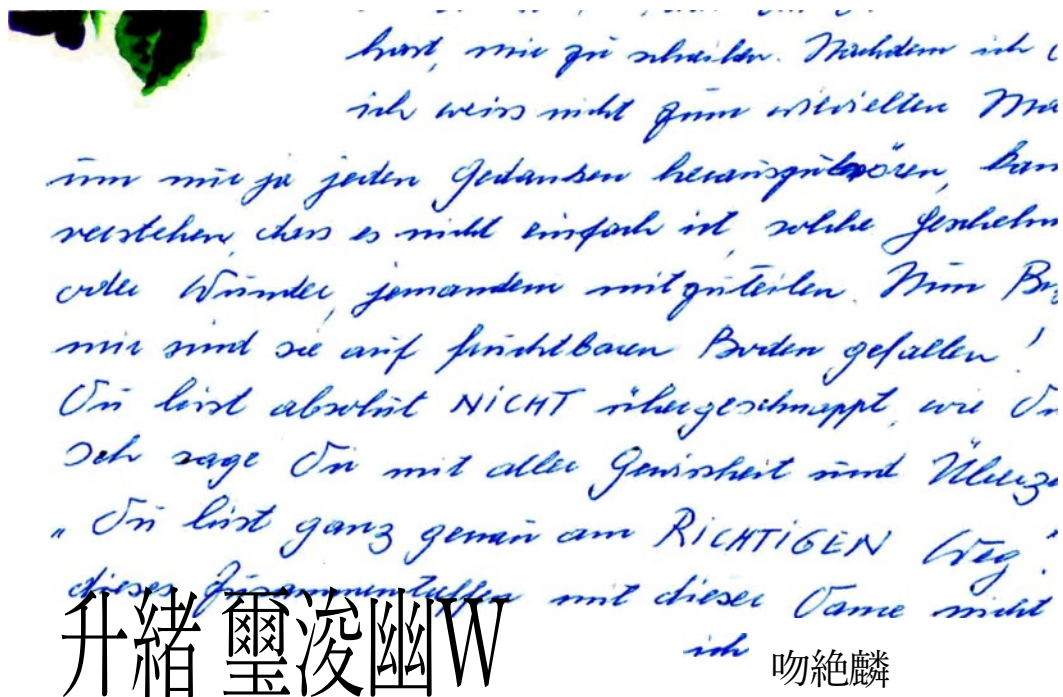 hast, mir zu schreiben. Nachdem ich
ich weiss nicht zum wievielten
um mir ja jeden Gedanken herauszuhören,
verstehen, dass es nicht einfach ist, solche
oder Wunder, jemandem mitzuteilen. Nun
mir sind sie auf fruchtbaren Boden gefallen!
Du bist absolut NICHT übergeschnappt, wie
Ich sage Dir mit aller Gewissheit und
„Du bist ganz genau am RICHTIGEN Weg"
dieses Zusammentreffen mit dieser Dame nicht
ich
升緒 璽浚幽W
吻絶麟